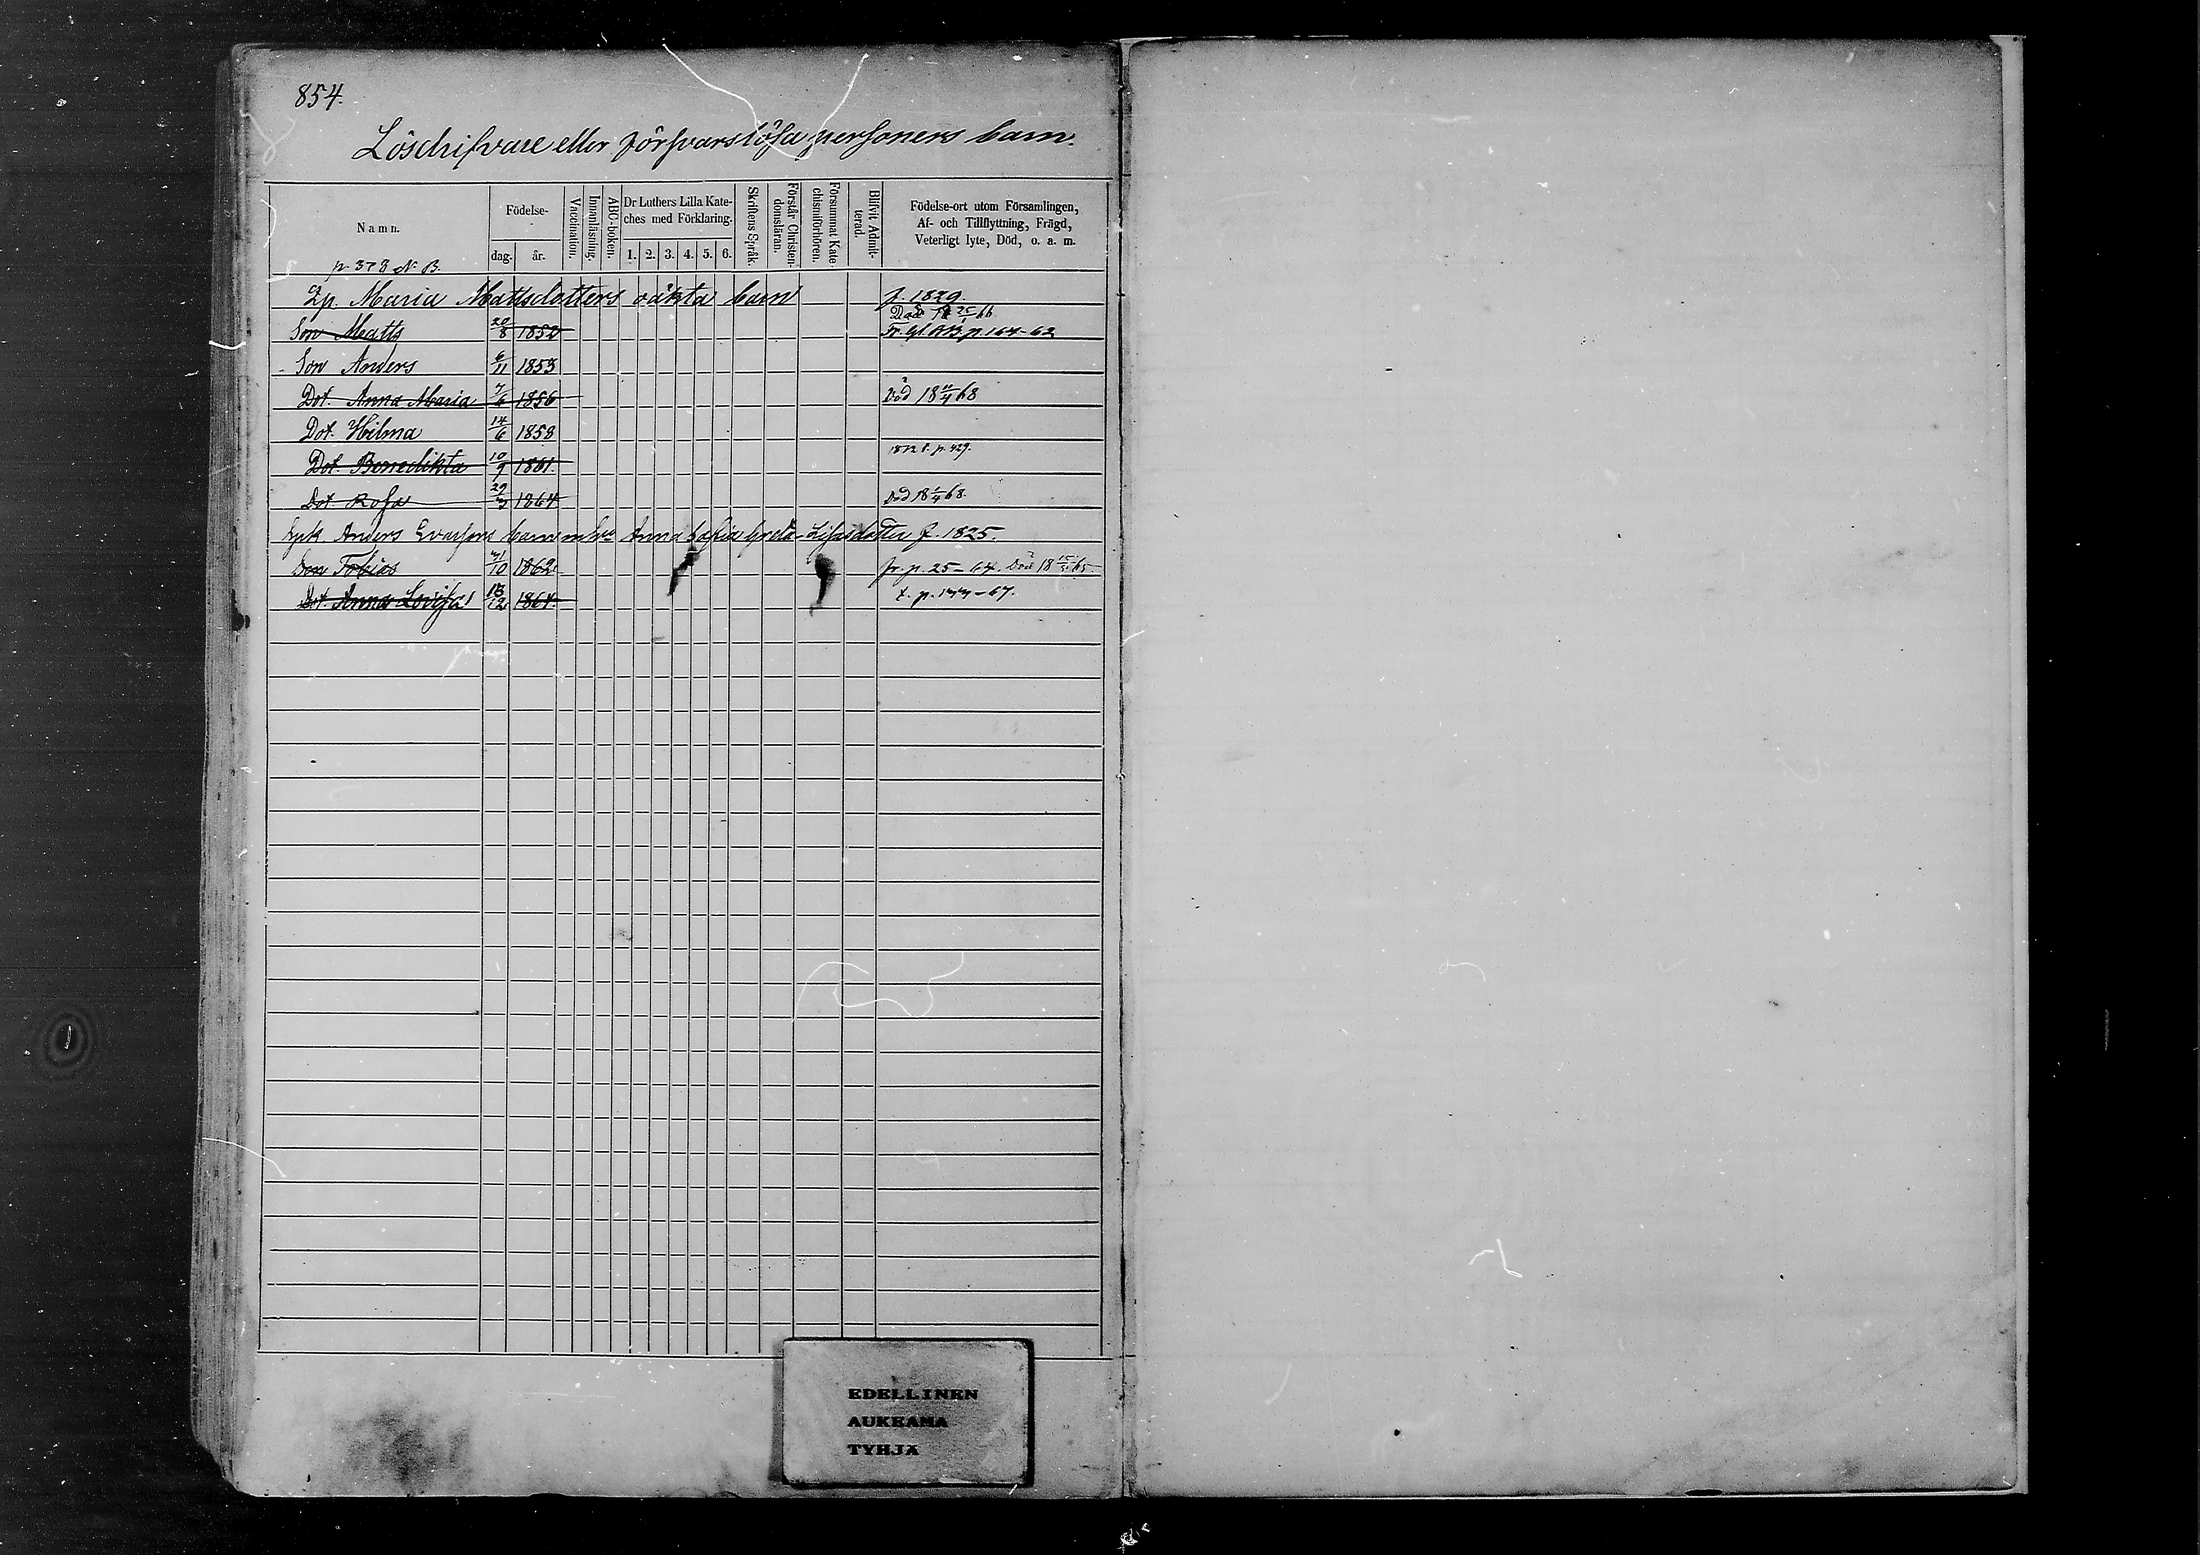 854.
Löschifvare eller försvarslösa personers barn.
Namn.
Födelse-
dag.
år.
Vaccination.
Innanläsning.
ABC-boken.
Dr Luthers Lilla Kate-
ches med Förklaring.
1. 2. 3. 4. 5. 6.
Skriftens Språk.
Förstår Christen-
domsläran.
Försummat Kate-
chismiförhören.
Blifvit Admit-
terad.
Födelse-ort utom Församlingen,
Af- och Tillflyttning, Frägd,
Veterligt lyte, Död, o. a. m.
p. 378 N. B.
Zp. Maria Mattsdotters oäkta barn f. 1829.
Död 18 25/1 66
Son Matts 20/8 1850 Fr. gl. BB p. 164-62
Son Anders 6/11 1853
Dot. Anna Maria 7/6 1856 Död 18 11/4 68
Dot. Hilma 14/6 1858
Dot. Benedikta 10/9 1861. 1872 t. p. 429.
Dot. Rosa 29/3 1864 Död 18 1/4 68.
Anders Evassons barn m. h. Anna Sofia Greta Lisasdotter f. 1825.
Son Tobias 31/10 1862 fr. p. 25-64. Död 18 15/5 65.
Dot. Anna Lovisa 13/12 1864. t. p. 177-67.
EDELLINEN
AUKEAMA
TYHJÄ